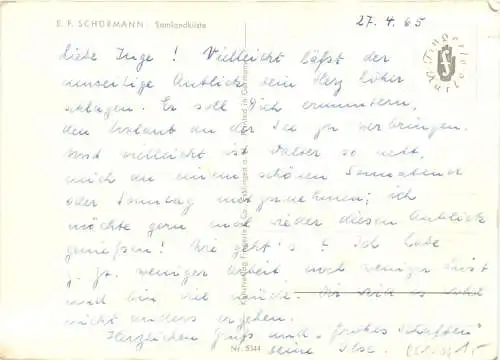 E. F. SCHÜRMANN: Samlandküste
27.4.65
Liebe Inge! Vielleicht läßt der
umseitige Anblick dein Herz höher
schlagen. Er soll Dich ermuntern,
den Urlaub an der See zu verbringen.
Und vielleicht ist Walter so nett,
mich an einem schönen Sonnabend
oder Sonntag mitzunehmen; ich
möchte gern mal wieder diesen Anblick
genießen! Wie geht's? Ich habe
z. Zt. weniger Arbeit noch weniger Lust
und bin viel müde.
nicht anders ergehen.
Herzlichen Gruß und "frohes Schaffen"
Deine Ilse.
Nr. 5344
Printed in Germany